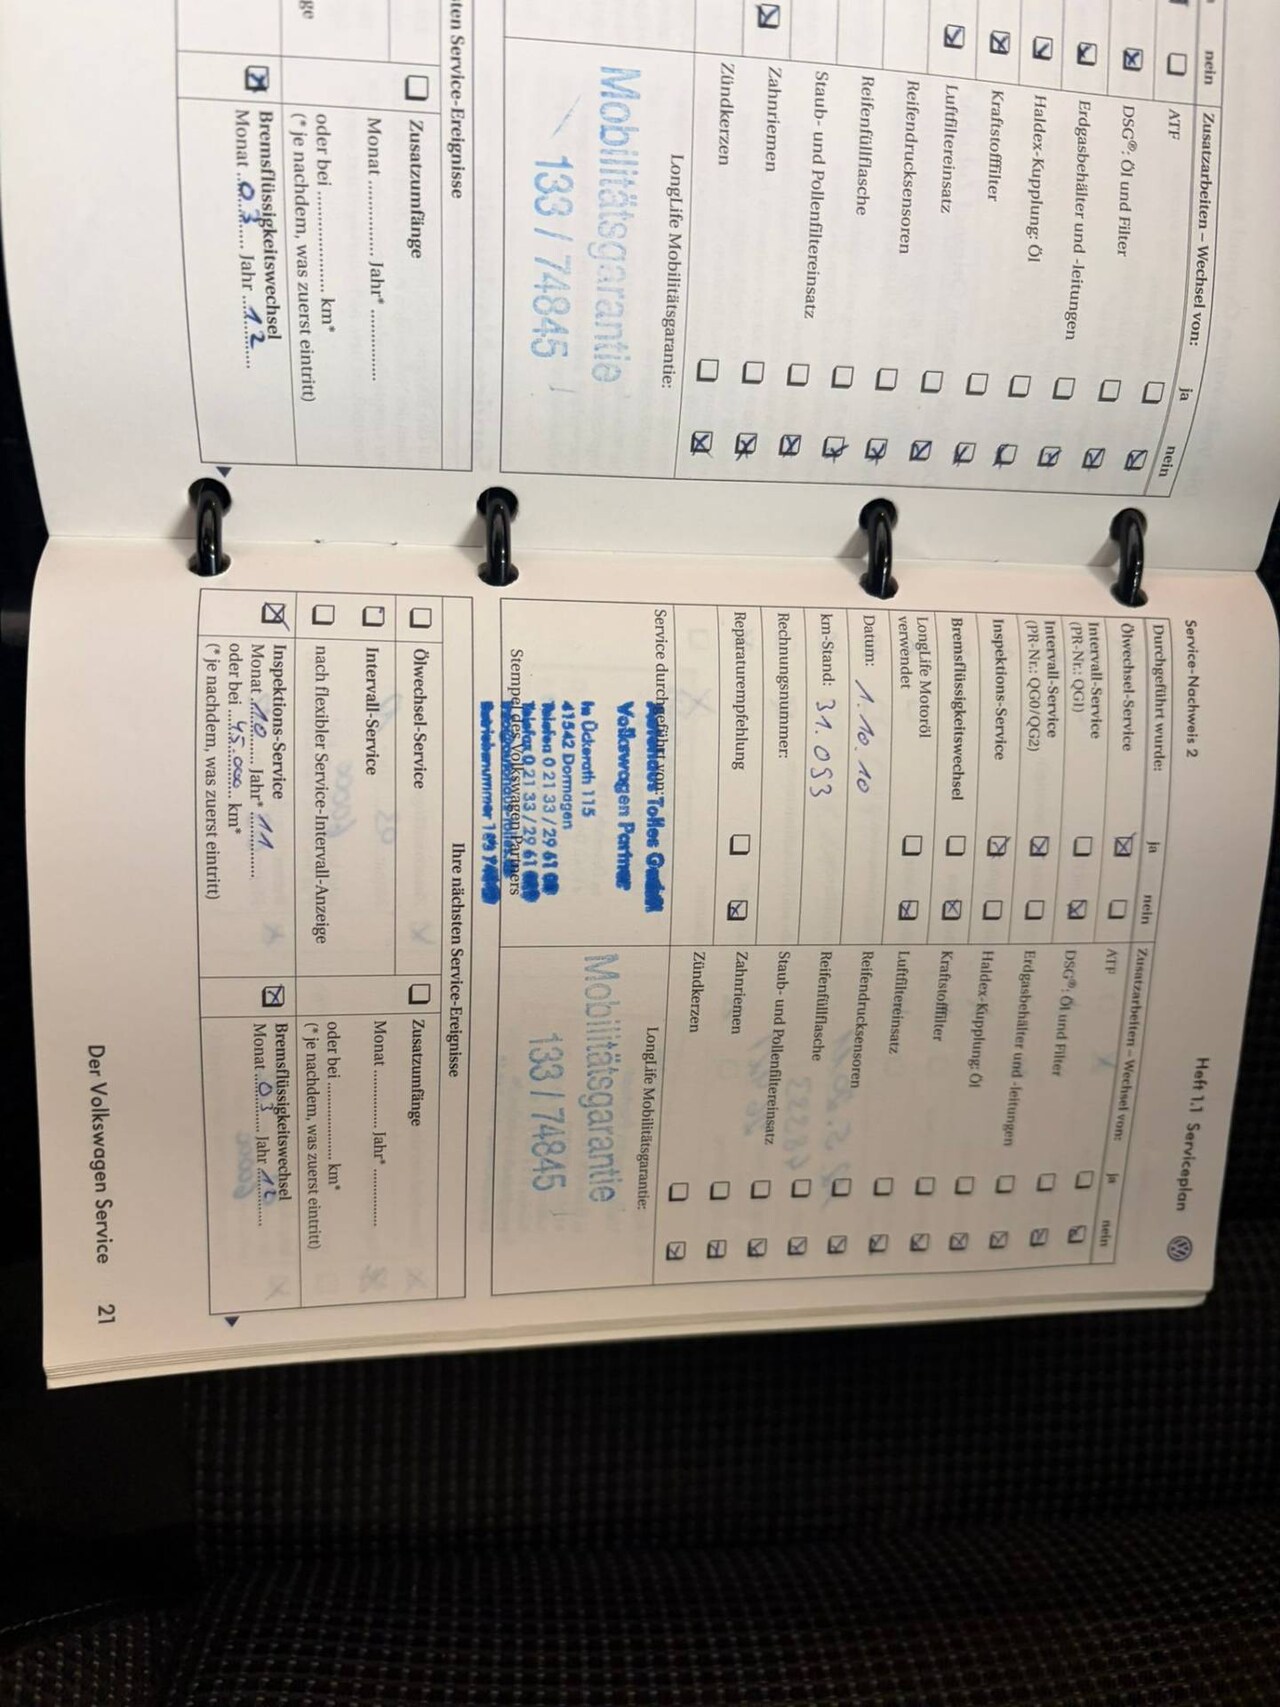 nein
Zusatzarbeiten – Wechsel von:
ja
nein
ATF
DSG®: Öl und Filter
Erdgasbehälter und -leitungen
Haldex-Kupplung: Öl
Kraftstofffilter
Luftfiltereinsatz
Reifendrucksensoren
Reifenfüllflasche
Staub- und Pollenfiltereinsatz
Zahnriemen
Zündkerzen
LongLife Mobilitätsgarantie:
Mobilitätsgarantie
133 / 74845
ten Service-Ereignisse
Zusatzumfänge
Monat ............... Jahr* ...............
oder bei .................... km*
(* je nachdem, was zuerst eintritt)
Bremsflüssigkeitswechsel
Monat ..03.. Jahr ..12..
Service-Nachweis 2
Heft 1.1 Serviceplan
Durchgeführt wurde:
ja
nein
Ölwechsel-Service
Intervall-Service
(PR-Nr.: QG1)
Intervall-Service
(PR-Nr.: QG0/QG2)
Inspektions-Service
Bremsflüssigkeitswechsel
LongLife Motoröl
verwendet
Datum: 1.10.10
km-Stand: 31.093
Rechnungsnummer:
Reparaturempfehlung
Service durchgeführt von:
Tolles GmbH
Volkswagen Partner
In Ückerath 115
41542 Dormagen
Telefon 0 21 33 / 29 61
Telefax 0 21 33 / 29 61
Stempel des Volkswagen Partners
Betriebsnummer
Zusatzarbeiten – Wechsel von:
ja
nein
ATF
DSG®: Öl und Filter
Erdgasbehälter und -leitungen
Haldex-Kupplung: Öl
Kraftstofffilter
Luftfiltereinsatz
Reifendrucksensoren
Reifenfüllflasche
Staub- und Pollenfiltereinsatz
Zahnriemen
Zündkerzen
LongLife Mobilitätsgarantie:
Mobilitätsgarantie
133 / 74845
Ihre nächsten Service-Ereignisse
Ölwechsel-Service
Intervall-Service
nach flexibler Service-Intervall-Anzeige
Inspektions-Service
Monat ..10.. Jahr* ..11..
oder bei ..45.000.. km*
(* je nachdem, was zuerst eintritt)
Zusatzumfänge
Monat ............... Jahr* ...............
oder bei .................... km*
(* je nachdem, was zuerst eintritt)
Bremsflüssigkeitswechsel
Monat ..03.. Jahr ..12..
Der Volkswagen Service 21